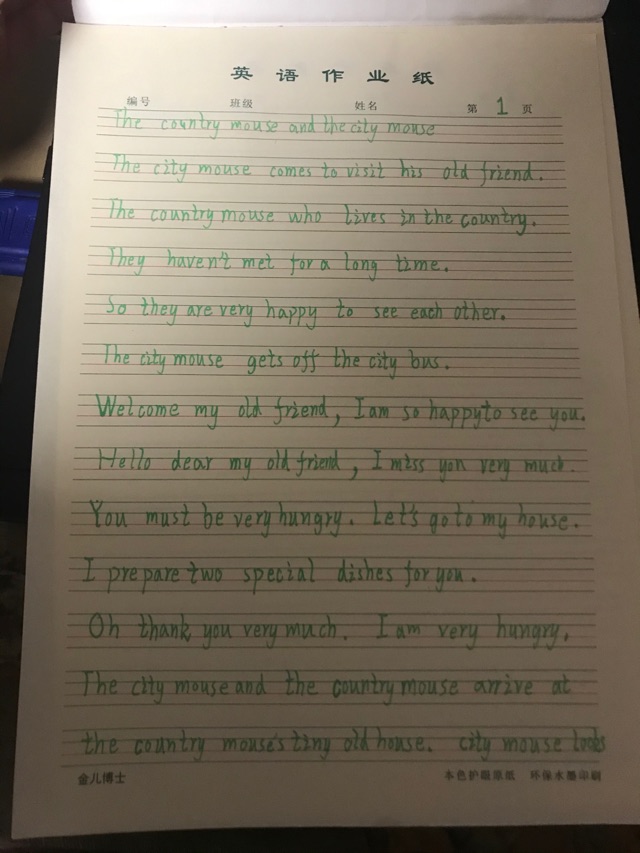 英语作业纸
编号 班级 姓名 第 1 页
The country mouse and the city mouse
The city mouse comes to visit his old friend.
The country mouse who lives in the country.
They haven't met for a long time.
So they are very happy to see each other.
The city mouse gets off the city bus.
Welcome my old friend, I am so happy to see you.
Hello dear my old friend, I miss you very much.
You must be very hungry. Let's go to my house.
I prepare two special dishes for you.
Oh thank you very much. I am very hungry.
The city mouse and the country mouse arrive at
the country mouse's tiny old house. city mouse looks
金儿博士 本色护眼原纸 环保水墨印刷